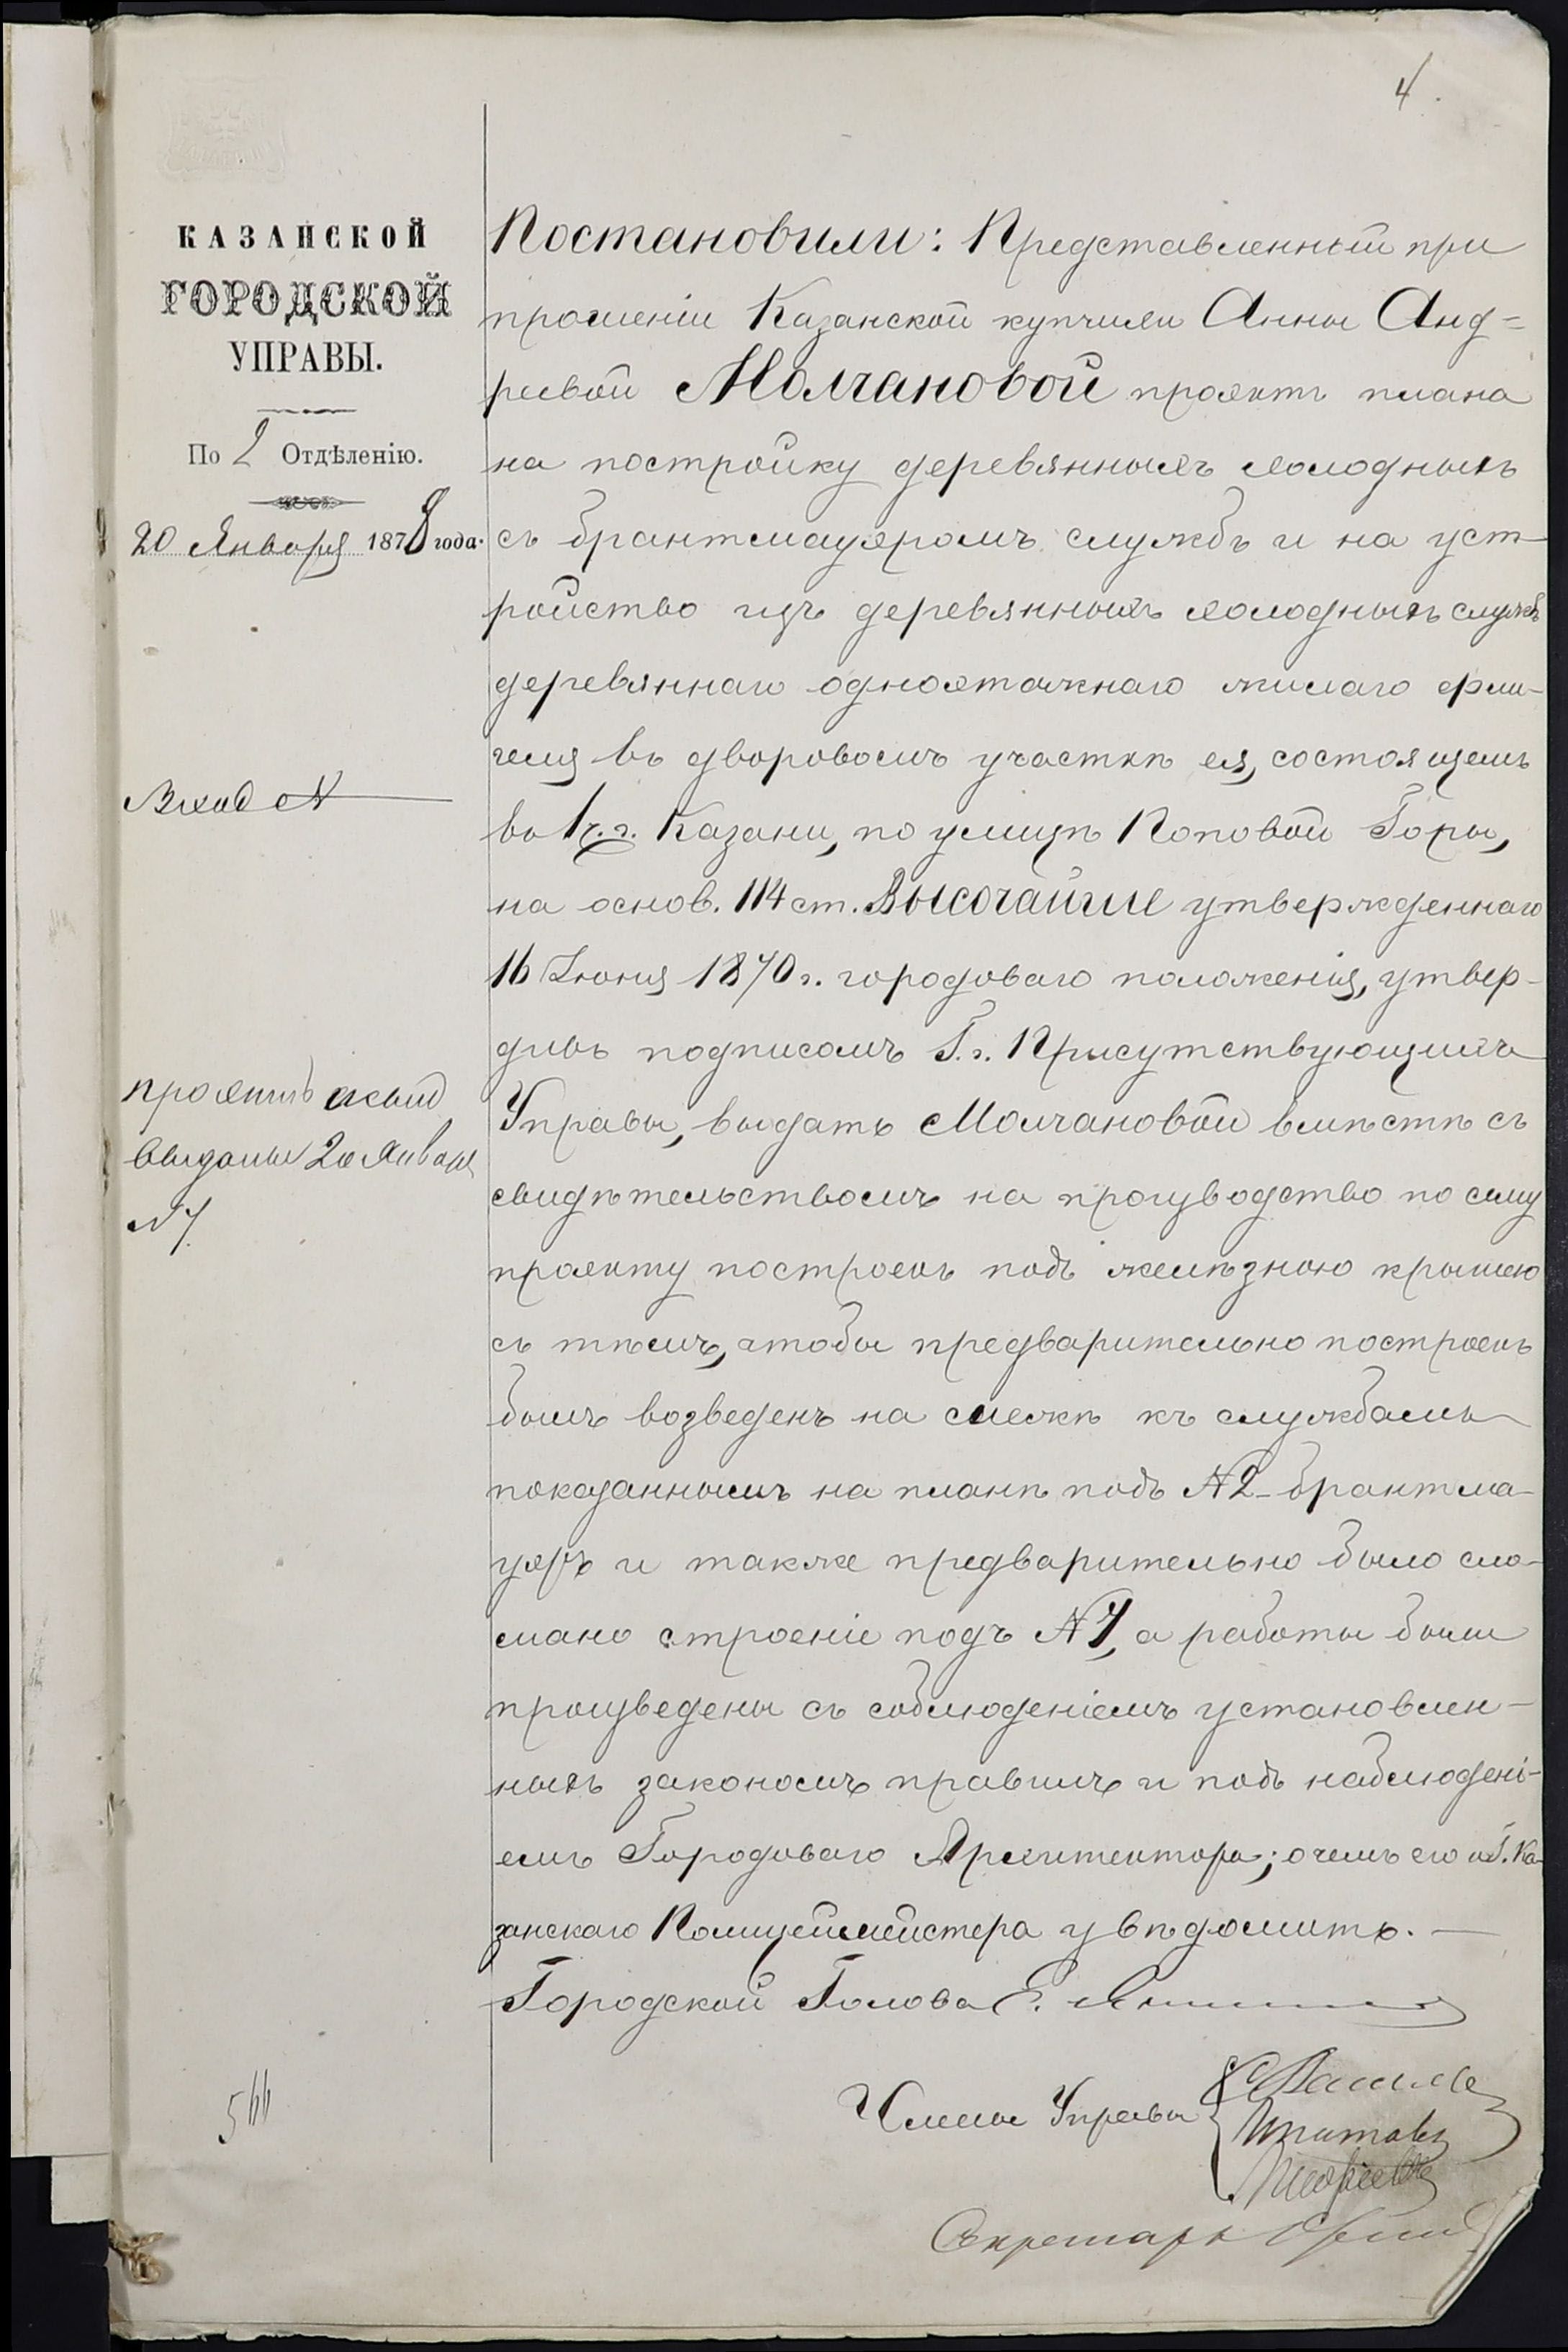 4.
КАЗАНСКОЙ
ГОРОДСКОЙ
УПРАВЫ.
По 2 Отдѣленію.
20 Января 1878 года.
Вход №
проэктъ
выданы 20 Января
№ 7.
566
Постановили: Представленный при
прошеніи Казанской купчихи Анны Анд=
реевой Молчановой проэктъ плана
на постройку деревянныхъ холодныхъ
съ брантмауэромъ службъ и на уст-
ройство изъ деревянныхъ холодныхъ службъ
деревяннаго одноэтажнаго жилаго фли-
геля въ дворовомъ участкѣ ея, состоящемъ
во 1 ч. г. Казани, по улицѣ Поповой Горы,
на основ. 114 ст. Высочайше утвержденнаго
16 Іюня 1870 г. городоваго положенія, утвер-
дивъ подписомъ Г.г. Присутствующихъ
Управы, выдать Молчановой вмѣстѣ съ
свидѣтельствомъ на производство по сему
проэкту построекъ подъ желѣзною крышею
съ тѣмъ, чтобы предварительно построекъ
былъ возведенъ на смежкѣ къ службамъ
показаннымъ на планѣ подъ №2 - брантма-
уэръ и также предварительно было сло-
мано строеніе подъ №7, а работы были
произведены съ соблюденіемъ установлен-
ныхъ закономъ правилъ и подъ наблюдені-
емъ Городоваго Архитектора; о чемъ его и Г. Ка-
занскаго Полицеймейстера увѣдомить. —
Городской Голова Э. Янишевскій
Члены Управы
Секретарь